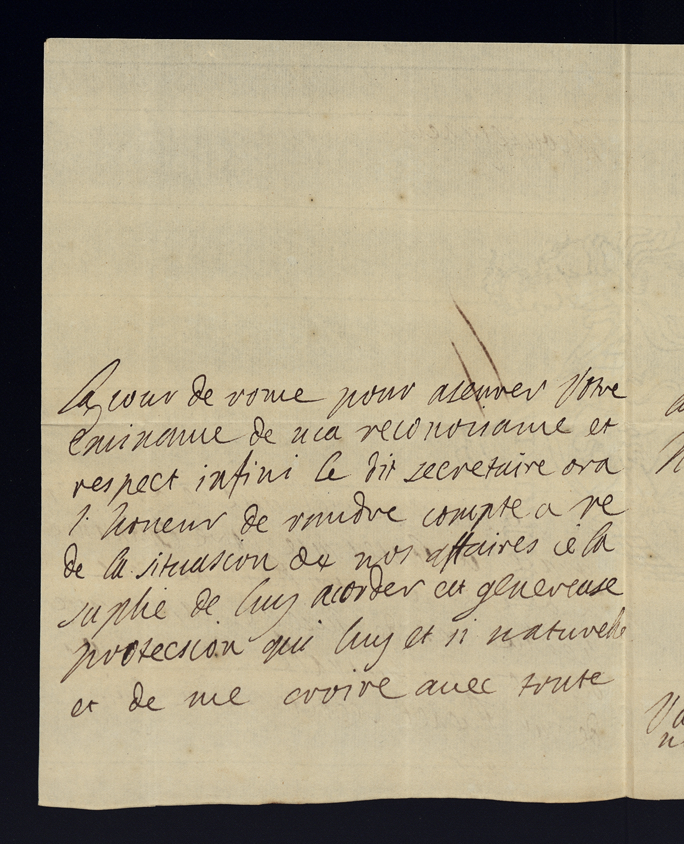 la cour de rome pour aseurer Votre
Eminance de ma reconoisance et
respect infini le dit secretaire ora
l'honeur de randre compte a
de la situasion de nos affaires ie la
suplie de luy acorder cet genereuse
protecsion qui luy et si naturelle
et de me croire avec toute